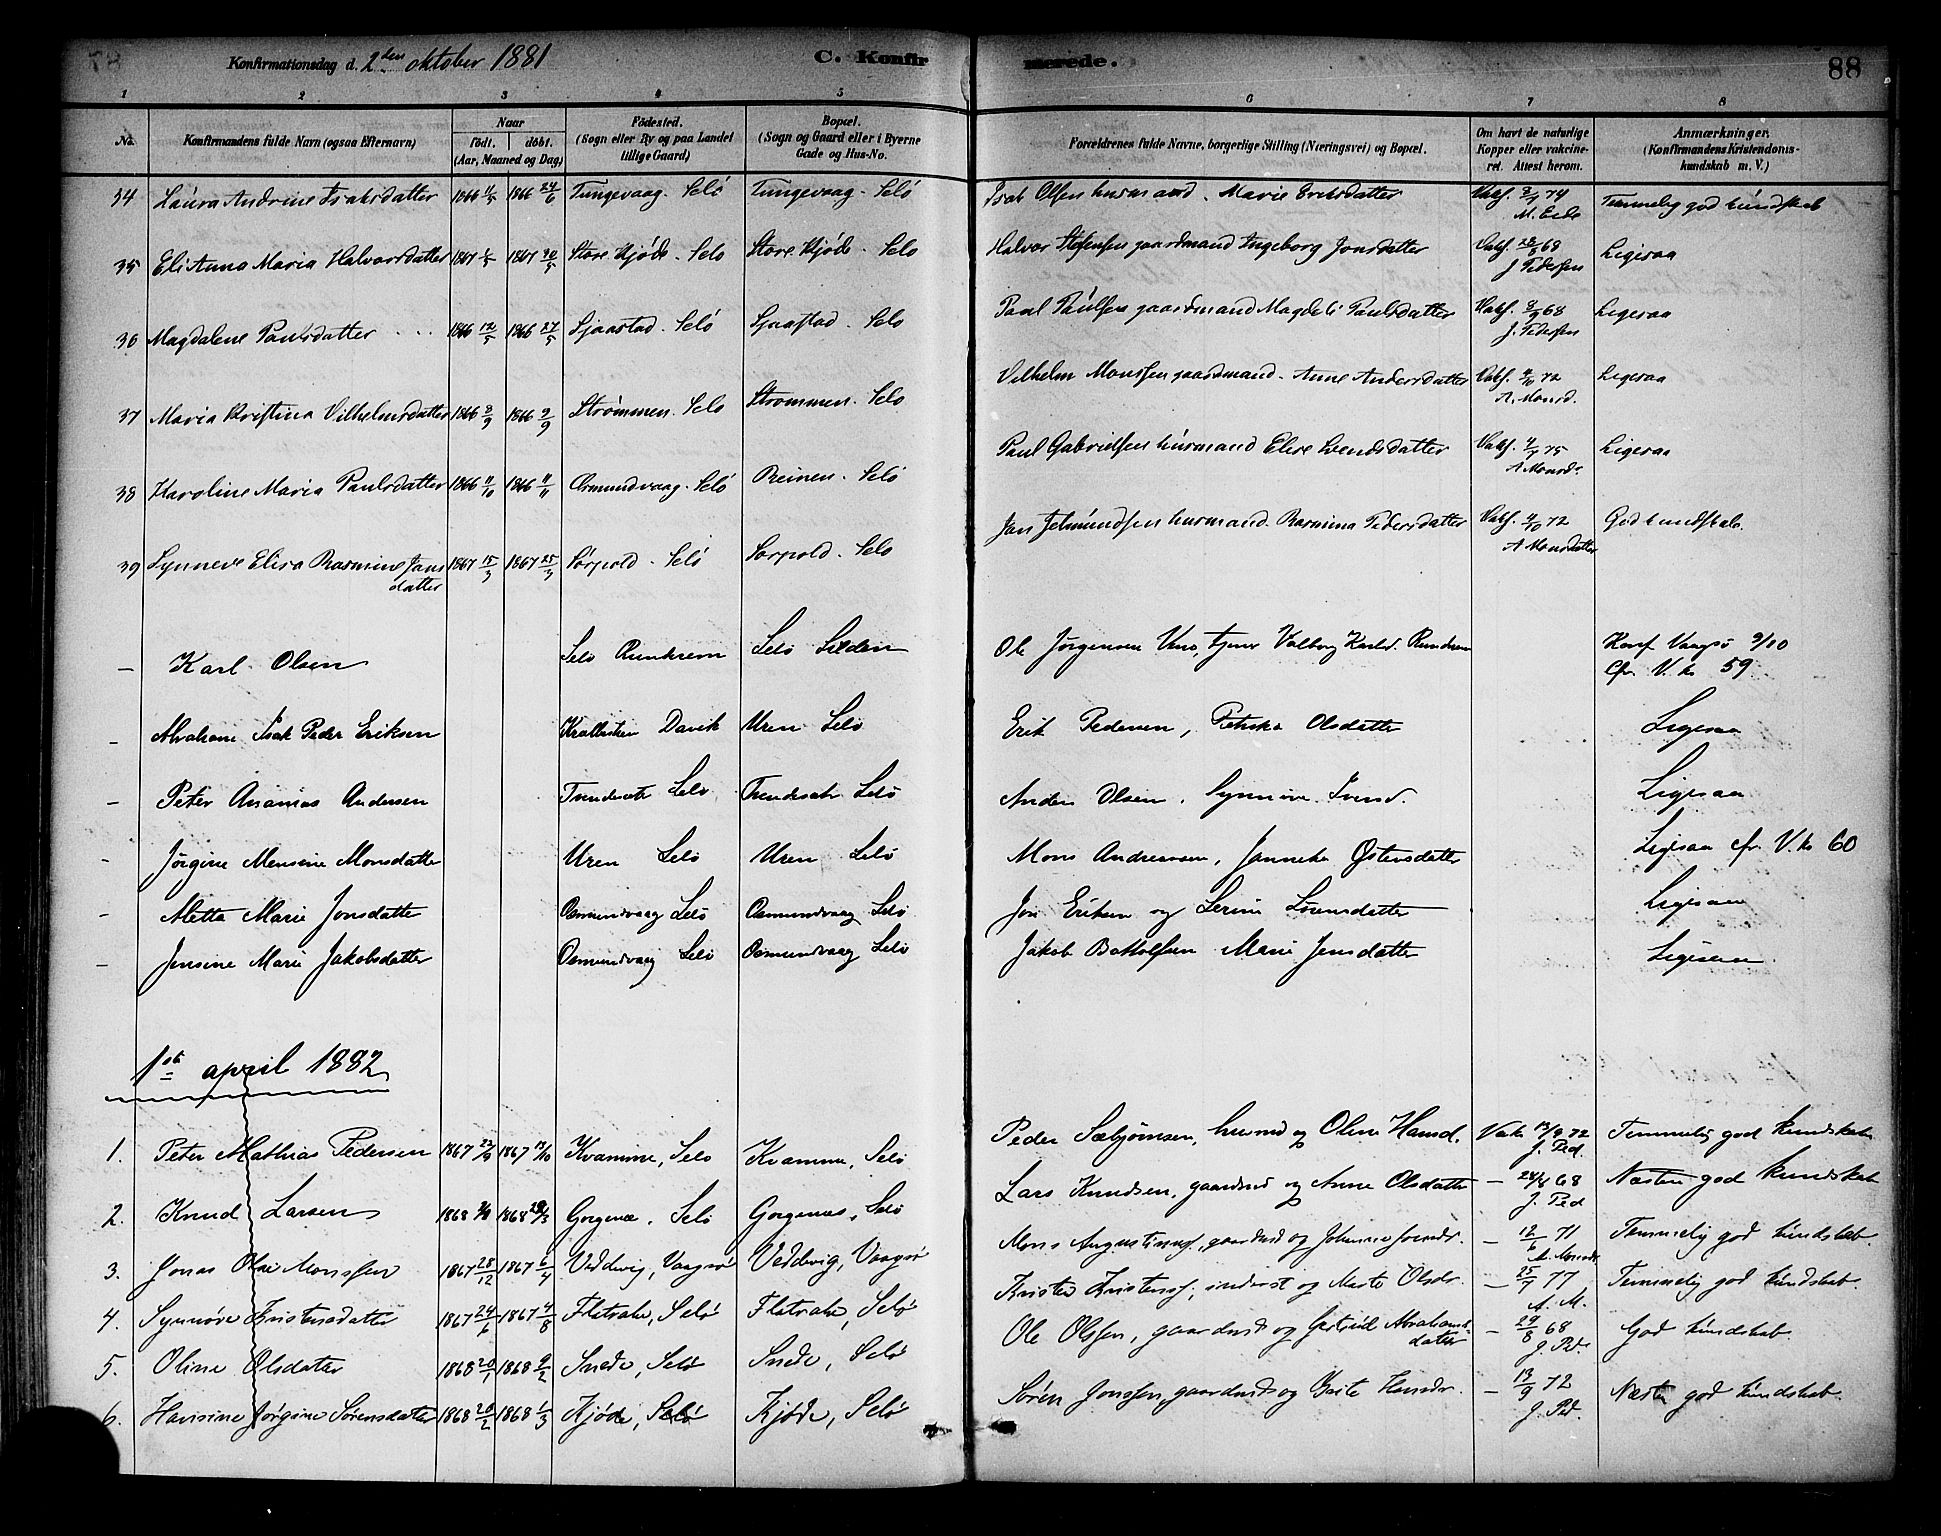 Konfirmationsdag d. 2den oktober 1881 C. Konfirmerede. 88
1 2 3 4 5 6 7 8
No. Konfirmandens fulde Navn (ogsaa Efternavn) Naar födt. döbt. (Aar, Maaned og Dag) Födested. (Sogn eller By og paa Landet tillige Gaard) Bopæl. (Sogn og Gaard eller i Byerne Gade og Hus-No. Forældrenes fulde Navne, borgerlige Stilling (Næringsvei) og Bopæl. Om havt de naturlige Kopper eller vakcineret. Attest herom. Anmærkninger. (Konfirmandens Kristendomskundskab m. V.)
34 Laura Andrine Isaksdatter 1866 11/5 1866 24/6 Tungevaag. Selö Tungevaag. Selö Isak Olsen husmand. Marie Eriksdatter Vakf. 74 M. Eide Temmelig god kundskab
35 Eli Anna Maria Halvorsdatter 1867 1/5 1867 30/5 Store Kjöde. Selö Store Kjöde. Selö Halvor Stefensen gaardmand Ingeborg Jonsdatter Vakf. 28/8 68 J Pedersen Ligesaa
36 Magdalene Paulsdatter 1866 12/5 1866 27/5 Sjaastad. Selö Sjaastad. Selö Paul Paulsen gaardmand Magdeli Paulsdatter Vakf. 8/9 68 J. Pedersen Ligesaa
37 Maria Kristina Vilhelmsdatter 1866 2/9 1866 9/9 Strömmen. Selö Strömmen. Selö Vilhelm Monssen gaardmand. Anne Andersdatter Vakf. 4/10 72 A. Monsd. Ligesaa
38 Karoline Maria Paulsdatter 1866 11/10 1866 11/11 Osmundvaag. Selö Reinen. Selö Paul Gabrielsen husmand Elise Svendsdatter Vakf. 4/7 75 A Monsd. Ligesaa
39 Synneve Elisa Rasmine Jansdatter 1867 15/3 1867 25/3 Sörpold. Selö Sorpold. Selö Jan Jetmundsen husmand. Rasmina Pedersdatter Vakf. 4/10 72 A Monsdatter God kundskab.
– Karl Olsen Selö Runkrem Selö Silden Ole Jörgensen tjener Valborg Karlsd. Konf Vaagsö 9/10 Cfr. V. k. 59.
– Abraham Isak Peder Eriksen Davik Uren Selö Erik Pedersen, Petrika Olsdatter Ligesaa
– Peter Ananias Andersen Selö Selö Anders Olsen, Synnöve Ligesaa
– Jörgine Mensine Monsdatter Uren Selö Uren Selö Mons Andreassen, Janneke Östensdatter Ligesaa cfr. V. k. 60
– Metta Marie Jonsdatter Osmundvaag Selö Osmundvaag Selö Jon Eriksen og Serine Sörensdatter Ligesaa
– Jensine Marie Jakobsdatter Osmundvaag Selö Osmundvaag Selö Jakob Botholfsen Marie Jensdatter Ligesaa.
1ste april 1882
1. Peter Mathias Pedersen 1867 22/9 1867 13/10 Kvamme, Selö Kvamme, Selö Peder Sæbjörnsen, husmd og Oline Hansd. Vak. 13/9 72 J. Ped. Temmelig god kundskab
2. Knud Larsen 1868 1868 29/3 Gorgenæs, Selö Gorgenæs, Selö Lars Knudsen, gaardmd og Anne Olsdatter – 28/8 68 J. Ped Næsten god kundskab
3. Jonas Olai Monssen 1867 28/12 1867 6/4 Veddevig, Vaagsö Veddevig, Vaagsö Mons Augustinusf., gaardmd og Johanne – 12/6 71 A. Monsdr. Temmelig god kundskab.
4. Synnöve Kristensdatter 1867 24/6 1867 4/8 Flatrake, Selö Flatrake, Selö Kristen Kristensf, inderst og Marte Olsdr. – 25/7 77 A. M. Temmelig god kundskab.
5. Oline Olsdatter 1868 20/1 1868 9/2 Snede, Selö Snede, Selö Ole Olsen, gaardmd og Gertrud Abrahamsdatter – 29/8 68 J. Ped. God kundskab.
6. Hansine Jörgine Sörensdatter 1868 20/2 1868 1/3 Kjöde, Selö Kjöde, Selö Sören Jonssen, gaardmd og Hansdr. – 13/9 72 J. Ped. Næsten god kundskab.